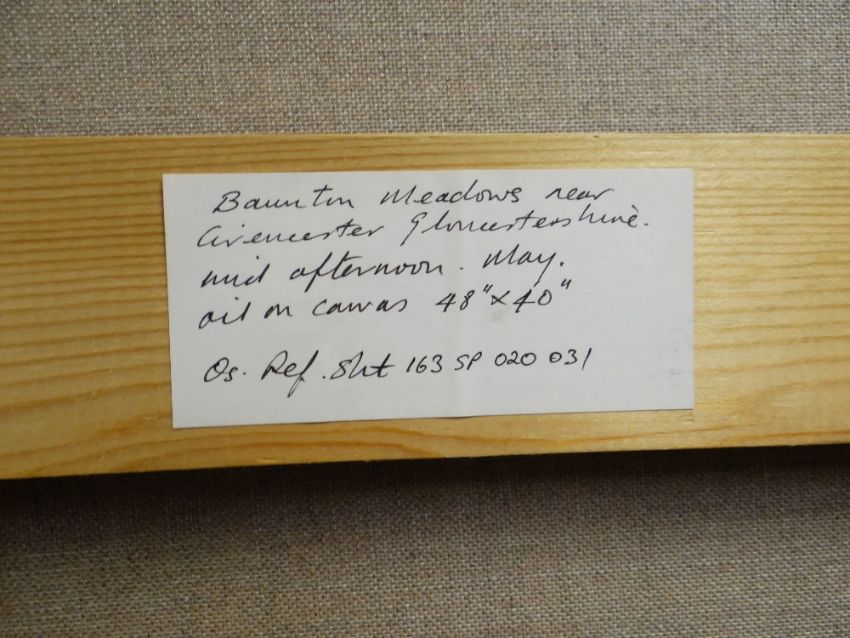 Baunton Meadows near
Cirencester Gloucestershire.
mid afternoon. May.
oil on canvas 48"x40"
Os. Ref. Sht 163 SP 020 031